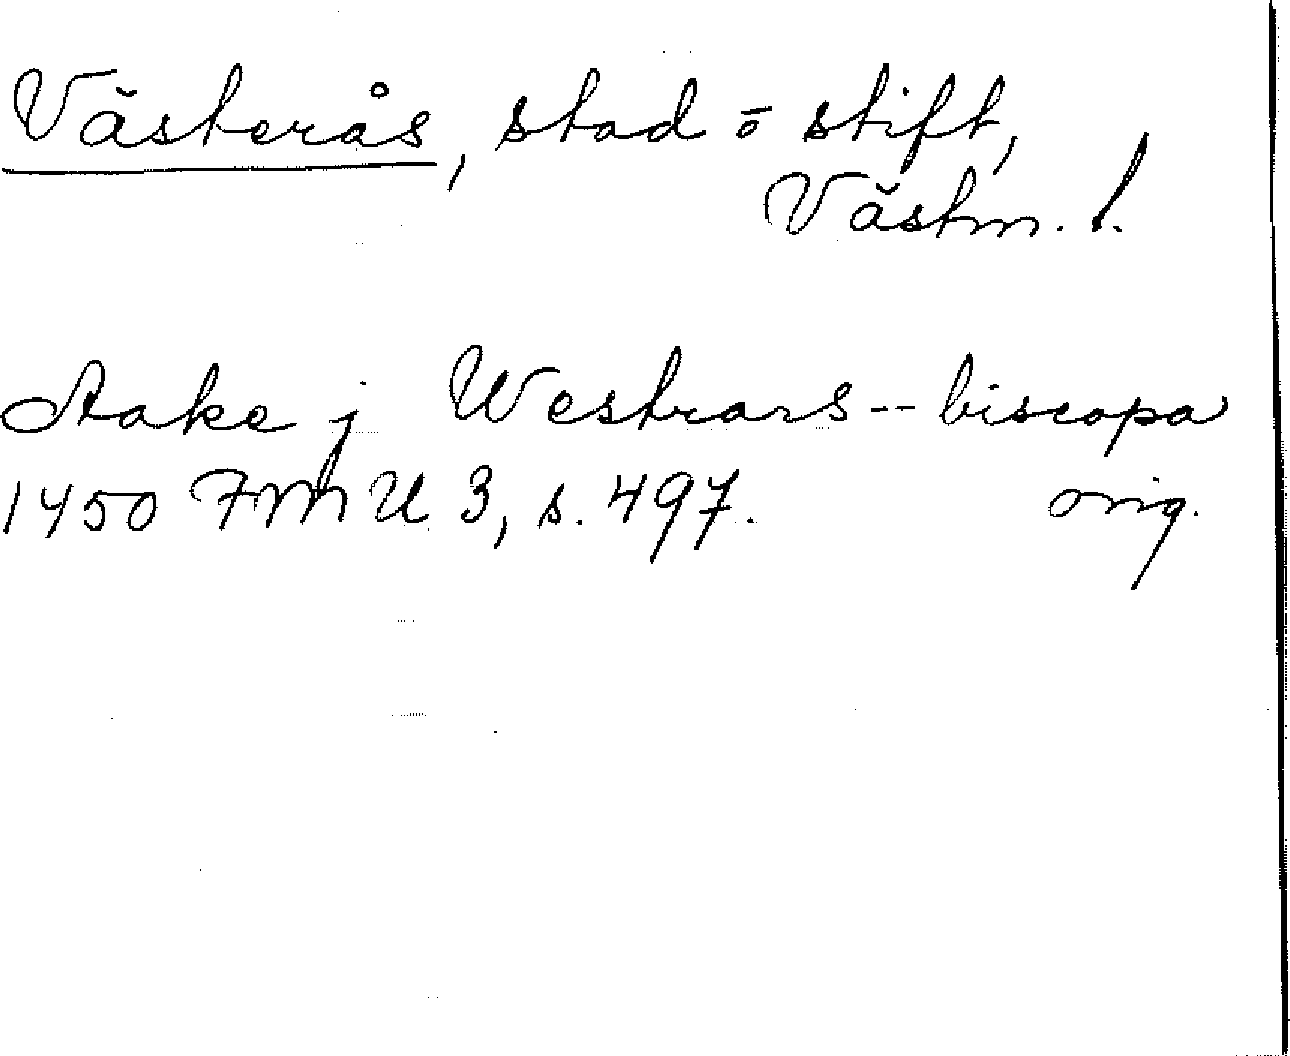 Västerås, stad ō stift,
Västm. l.
Aake j Westrars -- biscopa
1450 FMU 3, s. 497. orig.